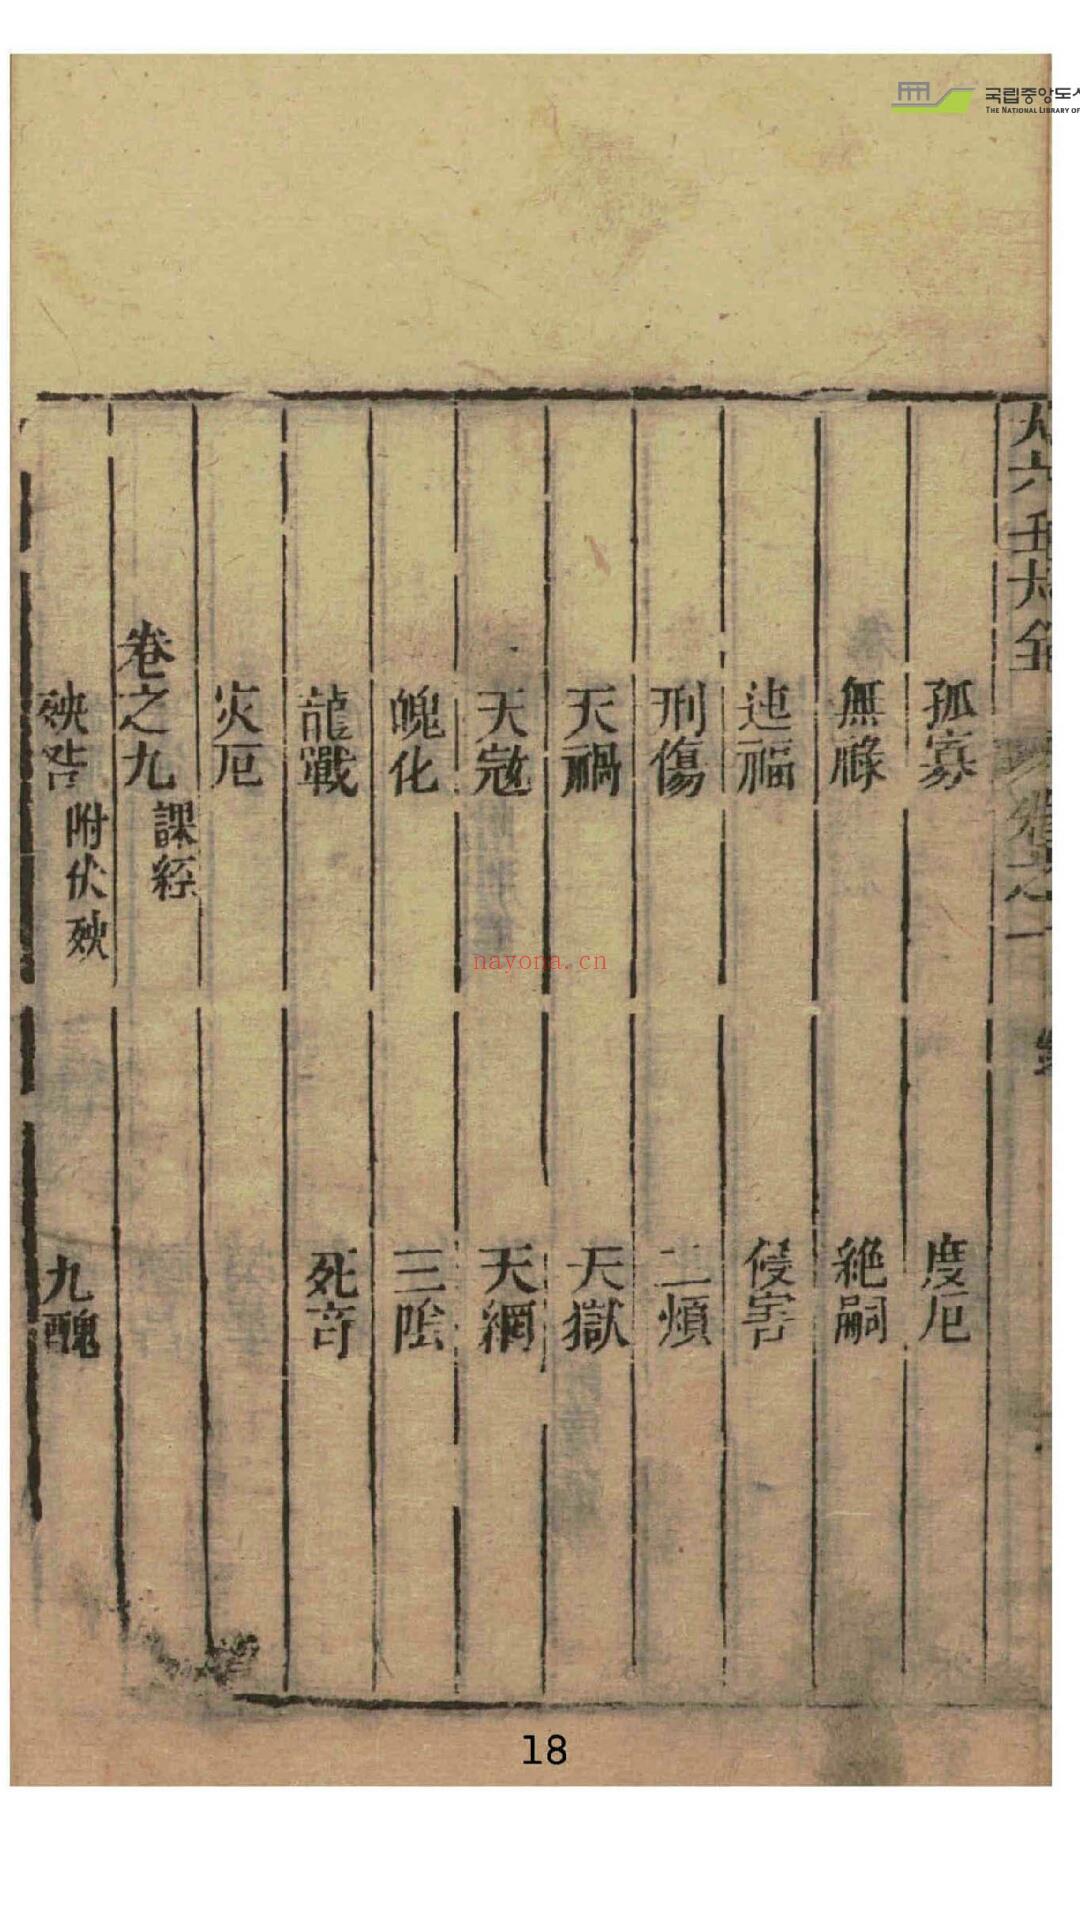 국립중앙도
THE NATIONAL LIBRARY OF
大六壬大全 卷之一
孤寡 度厄
無祿 絶嗣
迍福 侵害
刑傷 二煩
天禍 天獄
天寇 天網
魄化 三陰
龍戰 死奇
灾厄
卷之九 課經
殃咎 附伏殃 九醜
nayona.cn
18